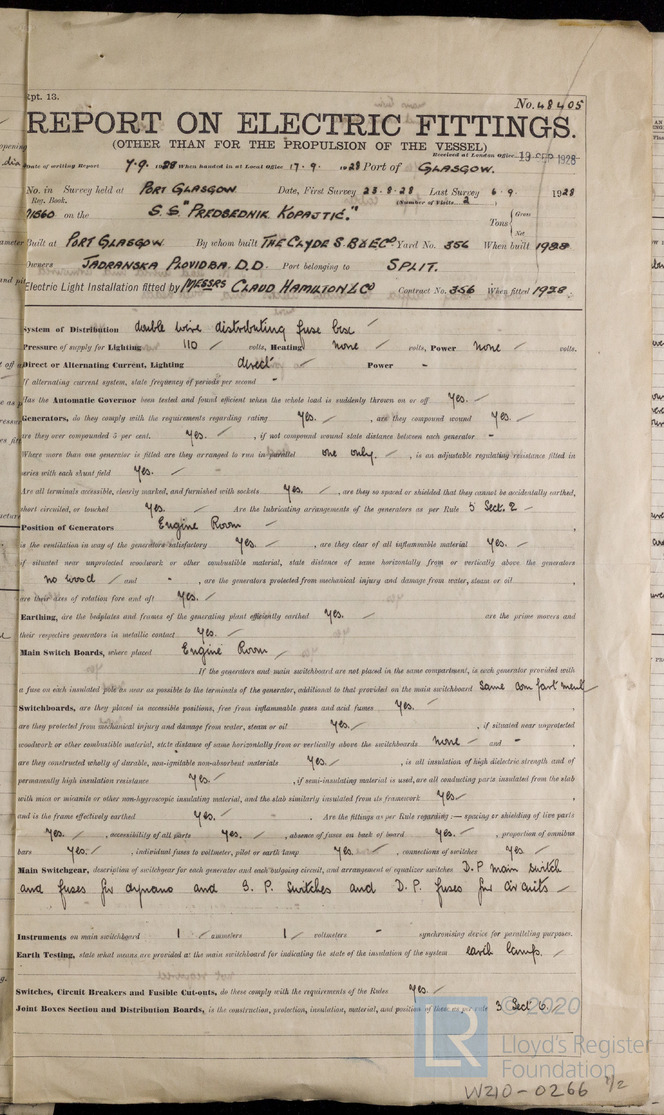 Rpt. 13.
No. 48405
REPORT ON ELECTRIC FITTINGS.
(OTHER THAN FOR THE PROPULSION OF THE VESSEL)
Received at London Office 19 SEP 1928
Date of writing Report 7.9.1928 When handed in at Local Office 17.9.1928 Port of GLASGOW.
No. in Survey held at PORT GLASGOW Date, First Survey 23.8.28 Last Survey 6.9.1928
Reg. Book. (Number of Visits 2)
71560 on the S.S. "PREDSEDNIK KOPAJTIĆ." Tons Gross Net
Built at PORT GLASGOW By whom built THE CLYDE S.B & E Co. Yard No. 356 When built 1928
Owners JADRANSKA PLOVIDBA D.D. Port belonging to SPLIT.
Electric Light Installation fitted by MESSRS CLAUD HAMILTON Ld Contract No. 356 When fitted 1928.
System of Distribution double wire distributing fuse box
Pressure of supply for Lighting 110 volts, Heating none volts, Power none volts.
Direct or Alternating Current, Lighting direct Power -
If alternating current system, state frequency of periods per second -
Has the Automatic Governor been tested and found efficient when the whole load is suddenly thrown on or off Yes.
Generators, do they comply with the requirements regarding rating Yes. , are they compound wound Yes.
are they over compounded 5 per cent. Yes. , if not compound wound state distance between each generator -
Where more than one generator is fitted are they arranged to run in parallel one only. , is an adjustable regulating resistance fitted in
series with each shunt field Yes.
Are all terminals accessible, clearly marked, and furnished with sockets Yes. , are they so spaced or shielded that they cannot be accidentally earthed,
short circuited, or touched Yes. Are the lubricating arrangements of the generators as per Rule 5 Sect. 2
Position of Generators Engine Room
is the ventilation in way of the generators satisfactory Yes. , are they clear of all inflammable material Yes.
if situated near unprotected woodwork or other combustible material, state distance of same horizontally from or vertically above the generators
no wood and - , are the generators protected from mechanical injury and damage from water, steam or oil
are their axes of rotation fore and aft Yes.
Earthing, are the bedplates and frames of the generating plant efficiently earthed Yes. are the prime movers and
their respective generators in metallic contact Yes.
Main Switch Boards, where placed Engine Room
If the generators and main switchboard are not placed in the same compartment, is each generator provided with
a fuse on each insulated pole as near as possible to the terminals of the generator, additional to that provided on the main switchboard same compartment
Switchboards, are they placed in accessible positions, free from inflammable gases and acid fumes Yes.
are they protected from mechanical injury and damage from water, steam or oil Yes. , if situated near unprotected
woodwork or other combustible material, state distance of same horizontally from or vertically above the switchboards none and -
are they constructed wholly of durable, non-ignitable non-absorbent materials Yes. , is all insulation of high dielectric strength and of
permanently high insulation resistance Yes. , if semi-insulating material is used, are all conducting parts insulated from the slab
with mica or micanite or other non-hygroscopic insulating material, and the slab similarly insulated from its framework Yes
and is the frame effectively earthed Yes. Are the fittings as per Rule regarding:— spacing or shielding of live parts
Yes. , accessibility of all parts Yes. , absence of fuses on back of board Yes. , proportion of omnibus
bars Yes. , individual fuses to voltmeter, pilot or earth lamp Yes. , connections of switches Yes.
Main Switchgear, description of switchgear for each generator and each outgoing circuit, and arrangement of equalizer switches D.P main switch
and fuses for dynamo and S.P. switches and D.P. fuses for circuits
Instruments on main switchboard 1 ammeters 1 voltmeters - synchronising device for paralleling purposes.
Earth Testing, state what means are provided at the main switchboard for indicating the state of the insulation of the system earth lamps.
Switches, Circuit Breakers and Fusible Cut-outs, do these comply with the requirements of the Rules Yes.
Joint Boxes Section and Distribution Boards, is the construction, protection, insulation, material, and position of these as per rule 3 Sect 6.
© 2020
Lloyd's Register
Foundation
W210-0266 1/2